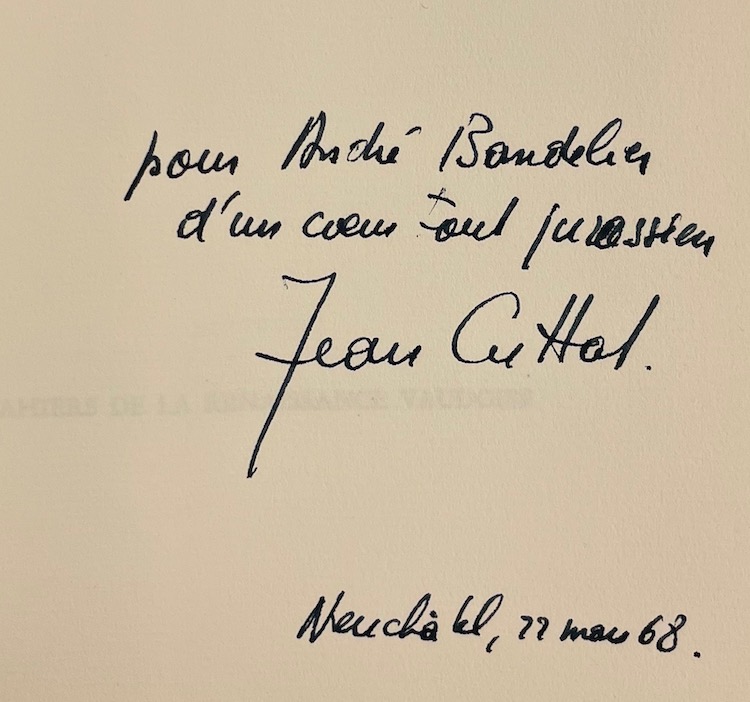 pour André Bandelier
d'un cœur tout jurassien
Jean Cuttat.
CAHIERS DE LA RENAISSANCE VAUDOISE
Neuchâtel, 22 mars 68.